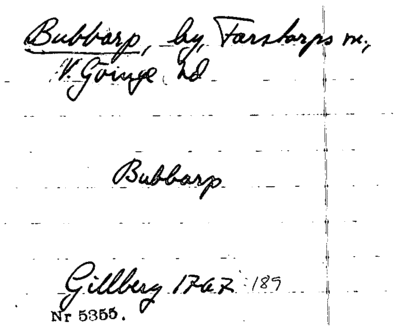 Bubbarp, by, Farstorps sn.,
V. Göinge hd
Bubbarp
Gillberg 1767 189
Nr 5355.